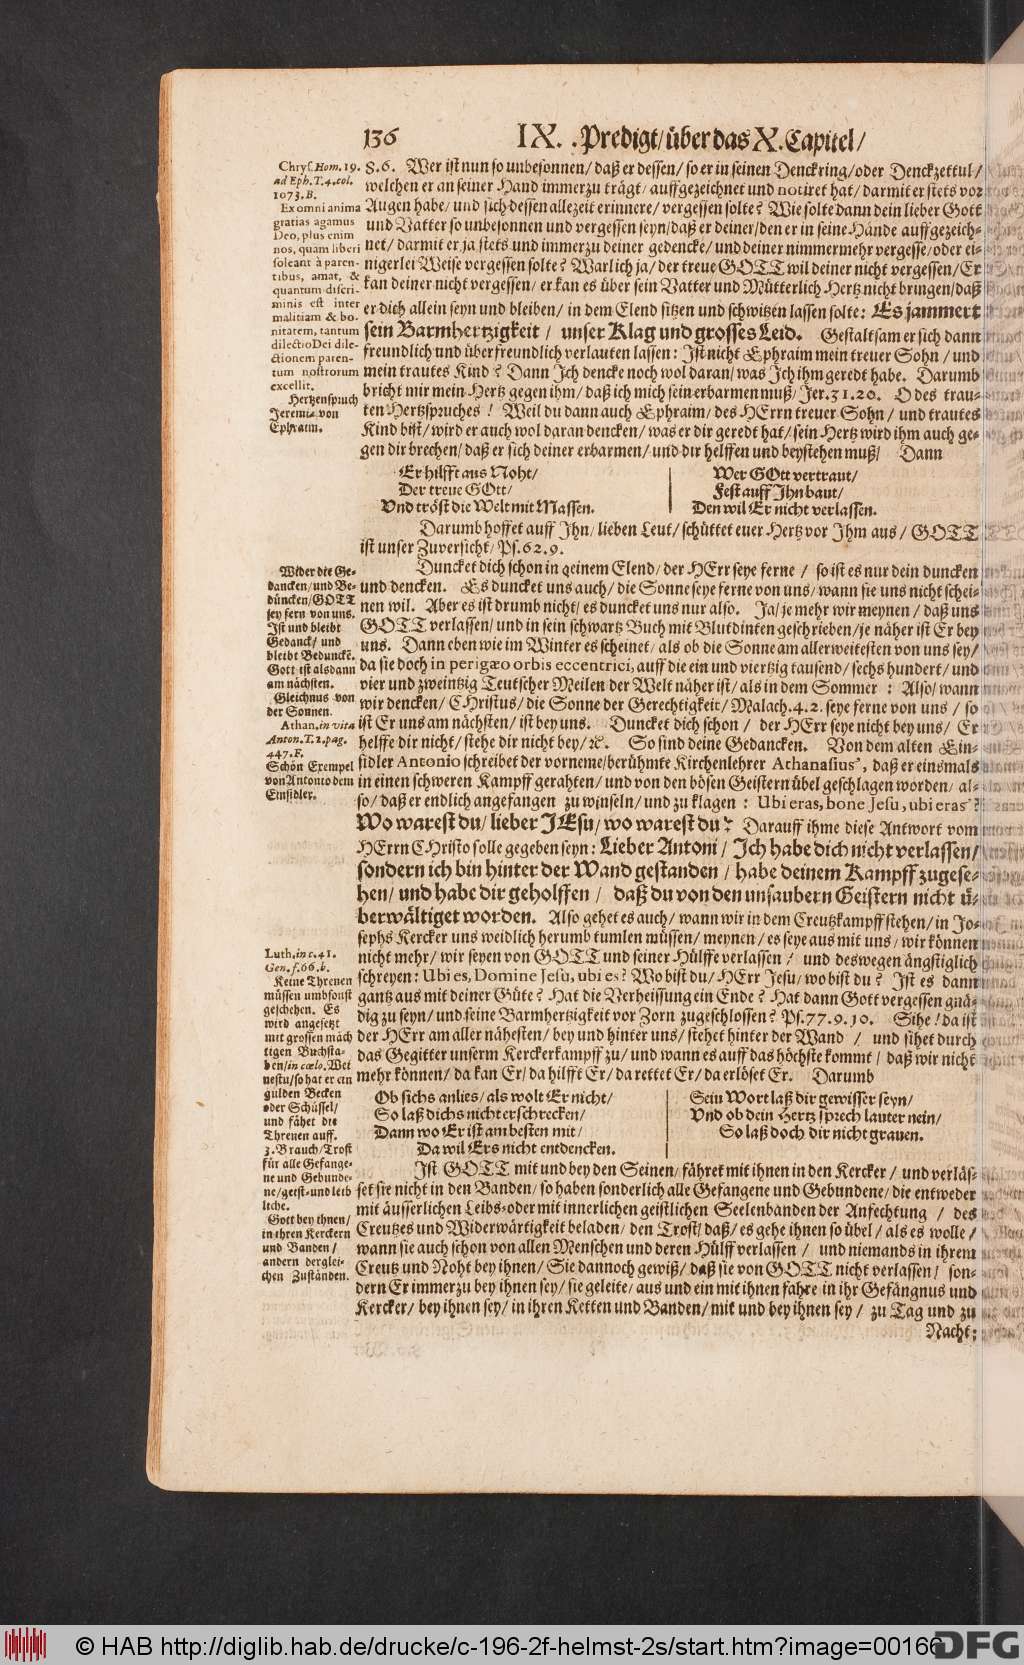 136 IX. Predigt/ über das X. Capitel/
Chrys. Hom. 19.
ad Eph. T. 4. col.
1073. B.
Ex omni anima
gratias agamus
Deo, plus enim
nos, quam liberi
soleant à paren-
tibus, amat, &
quantum discri-
minis est inter
malitiam & bo-
nitatem, tantum
dilectio Dei dile-
ctionem paren-
tum nostrorum
excellit.
Hertzenspruch
Jeremiæ von
Ephraim.
8. 6. Wer ist nun so unbesonnen/ daß er dessen/ so er in seinen Denckring/ oder Denckzettul/
welchen er an seiner Hand immerzu trägt/ auffgezeichnet und notiret hat/ darmit er stets vor
Augen habe/ und sich dessen allezeit erinnere/ vergessen solte? Wie solte dann dein lieber Gott
und Vatter so unbesonnen und vergessen seyn/ daß er deiner/ den er in seine Hände auffgezeich-
net/ darmit er ja stets und immerzu deiner gedencke/ und deiner nimmermehr vergesse/ oder ei-
nigerlei Weise vergessen solte? Warlich ja/ der treue GOTT wil deiner nicht vergessen/ Er
kan deiner nicht vergessen/ er kan es über sein Vatter und Mütterlich Hertz nicht bringen/ daß
er dich allein seyn und bleiben/ in dem Elend sitzen und schwitzen lassen solte: Es jammert
sein Barmhertzigkeit/ unser Klag und grosses Leid. Gestaltsam er sich dann
freundlich und überfreundlich verlauten lassen: Ist nicht Ephraim mein treuer Sohn/ und
mein trautes Kind? Dann Ich dencke noch wol daran/ was Ich ihm geredt habe. Darumb
bricht mir mein Hertz gegen ihm/ daß ich mich sein erbarmen muß/ Jer. 31. 20. O des trau-
ten Hertzspruches! Weil du dann auch Ephraim/ des HErrn treuer Sohn/ und trautes
Kind bist/ wird er auch wol daran dencken/ was er dir geredt hat/ sein Hertz wird ihm auch ge-
gen dir brechen/ daß er sich deiner erbarmen/ und dir helffen und beystehen muß/ Dann
Er hilfft aus Noht/
Der treue GOtt/
Und tröst die Welt mit Massen.
Wer GOtt vertraut/
Fest auff Ihn baut/
Den wil Er nicht verlassen.
Darumb hoffet auff Ihn/ lieben Leut/ schüttet euer Hertz vor Ihm aus/ GOTT
ist unser Zuversicht/ Ps. 62. 9.
Wider die Ge-
dancken/ und Be-
düncken/ GOTT
sey fern von uns.
Ist und bleibt
Gedanck/ und
bleibt Beduncke.
Gott ist alsdann
am nächsten.
Gleichnus von
der Sonnen.
Athan. in vita
Anton. T. 2. pag.
447. F.
Schön Exempel
von Antonio dem
Einsidler.
Duncket dich schon in deinem Elend/ der HErr seye ferne/ so ist es nur dein duncken
und dencken. Es duncket uns auch/ die Sonne seye ferne von uns/ wann sie uns nicht schei-
nen wil. Aber es ist drumb nicht/ es duncket uns nur also. Ja/ je mehr wir meynen/ daß uns
GOTT verlassen/ und in sein schwartz Buch mit Blutdinten geschrieben/ je näher ist Er bey
uns. Dann eben wie im Winter es scheinet/ als ob die Sonne am allerweitesten von uns sey/
da sie doch in perigæo orbis eccentrici, auff die ein und viertzig tausend/ sechs hundert/ und
vier und zweintzig Teutscher Meilen der Welt näher ist/ als in dem Sommer: Also/ wann
wir dencken/ CHristus/ die Sonne der Gerechtigkeit/ Malach. 4. 2. seye ferne von uns/ so
ist Er uns am nächsten/ ist bey uns. Duncket dich schon/ der HErr seye nicht bey uns/ Er
helffe dir nicht/ stehe dir nicht bey/ ꝛc. So sind deine Gedancken. Von dem alten Ein-
sidler Antonio schreibet der vorneme/ berühmte Kirchenlehrer Athanasius, daß er einsmals
in einen schweren Kampff gerahten/ und von den bösen Geistern übel geschlagen worden/ al-
so/ daß er endlich angefangen zu winseln/ und zu klagen: Ubi eras, bone Jesu, ubi eras?
Wo warest du/ lieber JEsu/ wo warest du? Darauff ihme diese Antwort vom
HErrn CHristo solle gegeben seyn: Lieber Antoni/ Ich habe dich nicht verlassen/
sondern ich bin hinter der Wand gestanden/ habe deinem Kampff zugese-
hen/ und habe dir geholffen/ daß du von den unsaubern Geistern nicht ü-
berwältiget worden. Also gehet es auch/ wann wir in dem Creutzkampff stehen/ in Jo-
sephs Kercker uns weidlich herumb tumlen müssen/ meynen/ es seye aus mit uns/ wir können
nicht mehr/ wir seyen von GOTT und seiner Hülffe verlassen/ und deswegen ängstiglich
schreyen: Ubi es, Domine Jesu, ubi es? Wo bist du/ HErr Jesu/ wo bist du? Ist es dann
gantz aus mit deiner Güte? Hat die Verheissung ein Ende? Hat dann Gott vergessen gnä-
dig zu seyn/ und seine Barmhertzigkeit vor Zorn zugeschlossen? Ps. 77. 9. 10. Sihe! da ist
der HErr am aller nähesten/ bey und hinter uns/ stehet hinter der Wand/ und sihet durch
das Gegitter unserm Kerckerkampff zu/ und wann es auff das höchste kommt/ daß wir nicht
mehr können/ da kan Er/ da hilfft Er/ da rettet Er/ da erlöset Er. Darumb
Luth. in c. 41.
Gen. f. 66. b.
Keine Threnen
müssen umbsonst
geschehen. Es
wird angesetzt
mit grossen mäch
tigen Buchsta-
ben/ in cœlo. Wei
nestu/ so hat er ein
gulden Becken
oder Schüssel/
und fähet die
Threnen auff.
3. Brauch/ Trost
für alle Gefange-
ne und Gebunde-
ne/ geist- und leib
liche.
Gott bey ihnen/
in ihren Kerckern
und Banden/
andern derglei-
chen Zuständen.
Ob sichs anlies/ als wolt Er nicht/
So laß dichs nicht erschrecken/
Dann wo Er ist am besten mit/
Da wil Ers nicht entdencken.
Sein Wort laß dir gewisser seyn/
Und ob dein Hertz sprech lauter nein/
So laß doch dir nicht grauen.
Ist GOTT mit und bey den Seinen/ fähret mit ihnen in den Kercker/ und verläs-
set sie nicht in den Banden/ so haben sonderlich alle Gefangene und Gebundene/ die entweder
mit äusserlichen Leibs- oder mit innerlichen geistlichen Seelenbanden der Anfechtung/ des
Creutzes und Widerwärtigkeit beladen/ den Trost/ daß/ es gehe ihnen so übel/ als es wolle/
wann sie auch schon von allen Menschen und deren Hülff verlassen/ und niemands in ihrem
Creutz und Noht bey ihnen/ Sie dannoch gewiß/ daß sie von GOTT nicht verlassen/ son-
dern Er immerzu bey ihnen sey/ sie geleite/ aus und ein mit ihnen fahre in ihr Gefängnus und
Kercker/ bey ihnen sey/ in ihren Ketten und Banden/ mit und bey ihnen sey/ zu Tag und zu
Nacht;
© HAB http://diglib.hab.de/drucke/c-196-2f-helmst-2s/start.htm?image=00166
DFG